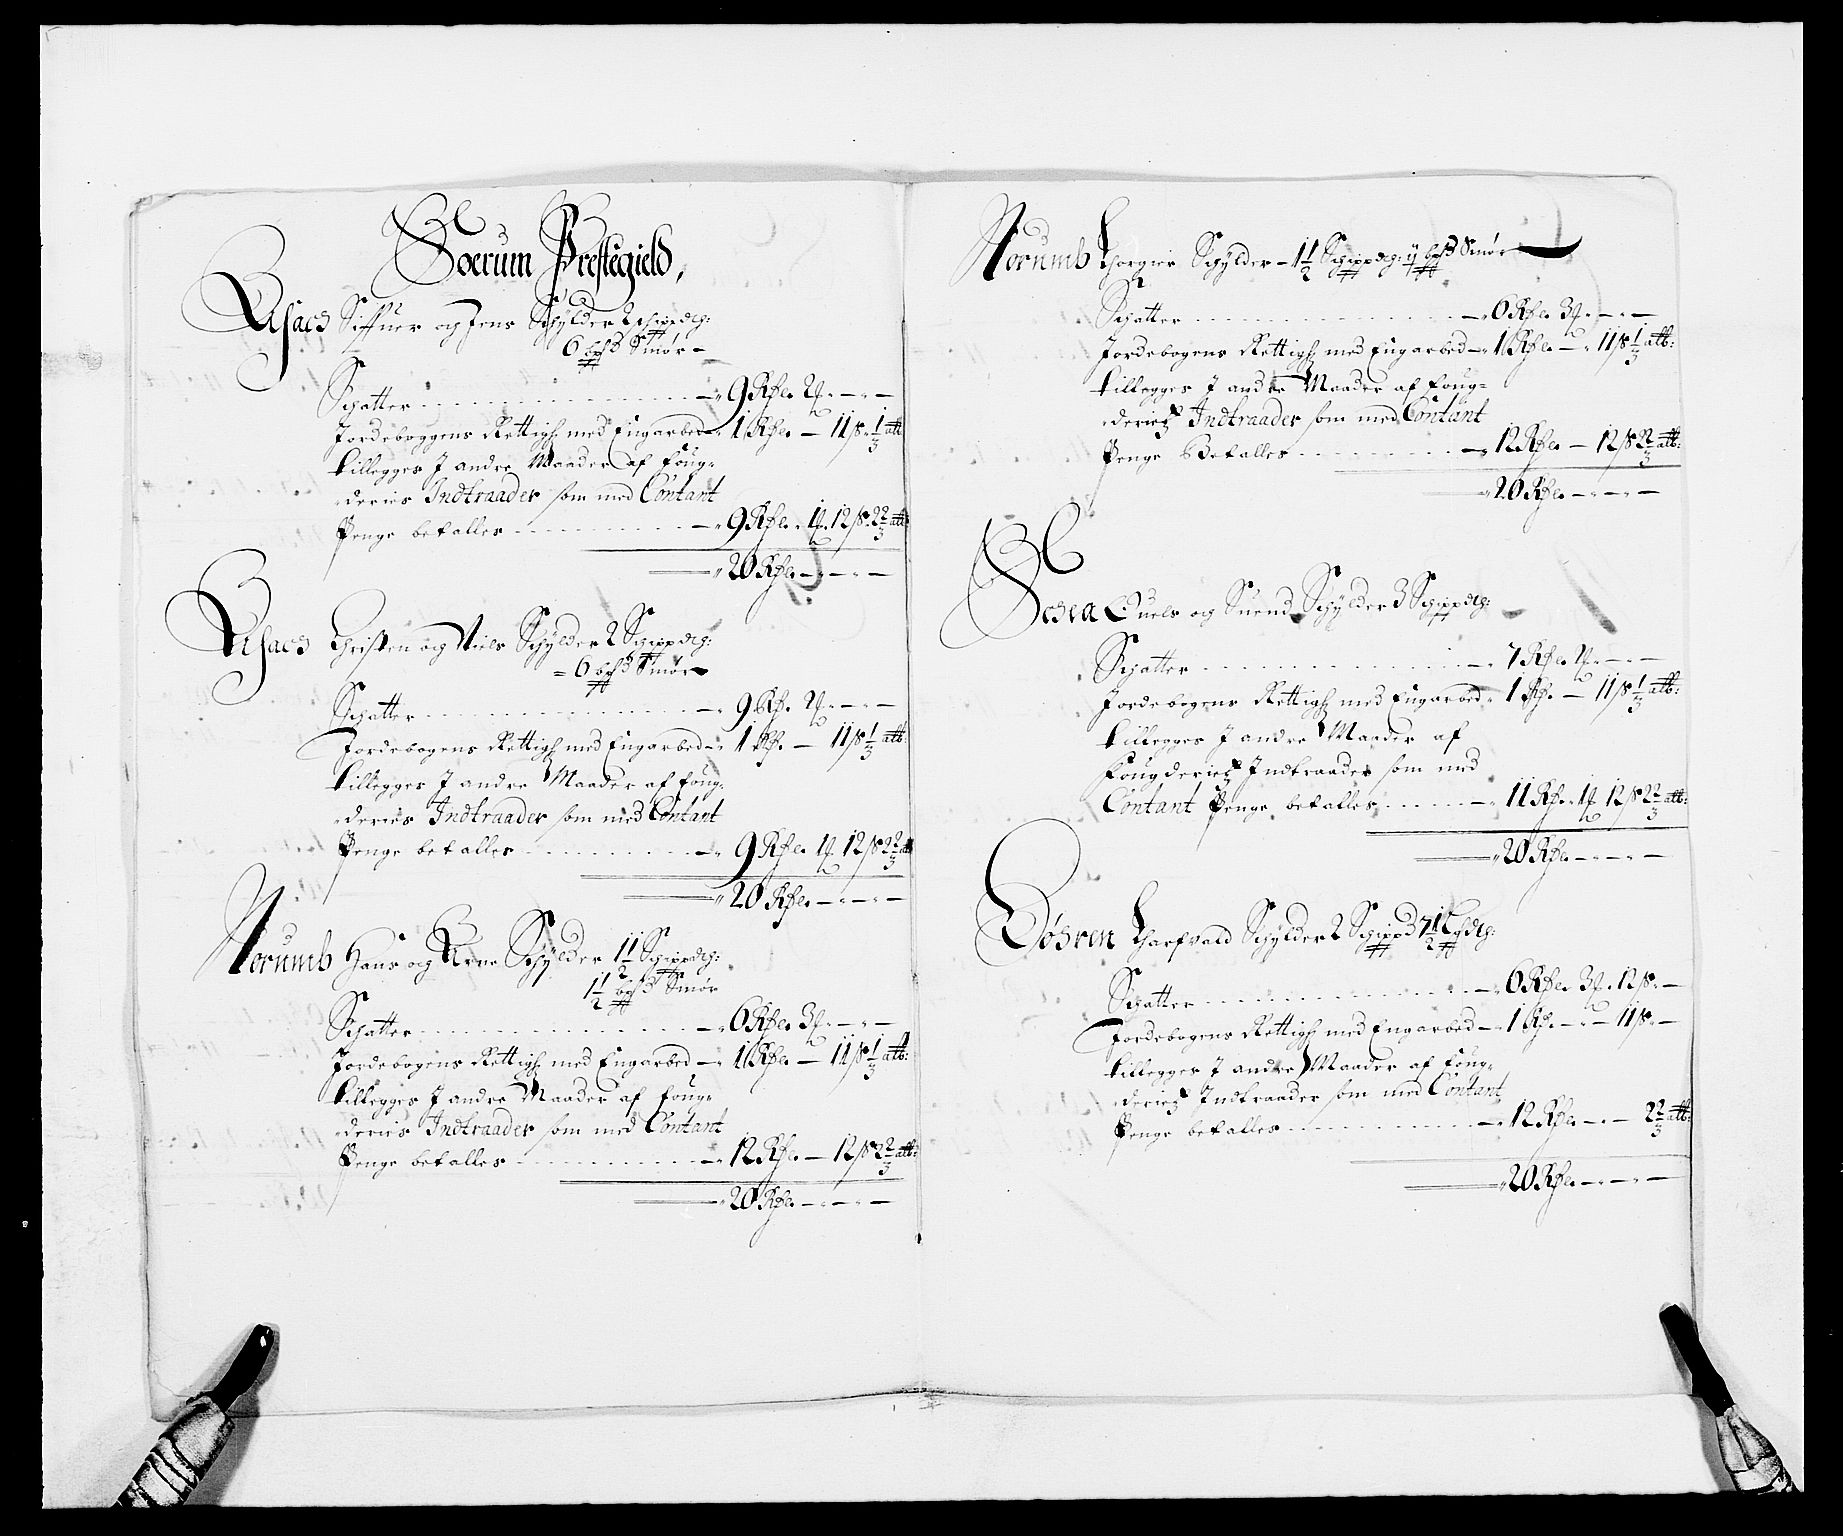 Soerum Prestegield,
Aasacs Siffuer og Jens Schylder 2 Schippdg:
6 bpd Smør –
Schatter – 9 Rdl. 2 – – –
Jordeboggens Rettigh med Engarbed – 1 Rdl. – 11 ß 1/3 alb
tillegges J andre Maader af foug-
deries Indtraader som med Contant
Penge betalles – 9 Rdl. 1 12 ß 2 2/3 alb
20 Rdl. – – –
Aasacs Christen og Niels Schylder 2 Schippdg:
6 bpd Smør –
Schatter – 9 Rd. 2 – – –
Jordebogens Rettigh med Engarbed – 1 Rd. – 11 ß 1/3 alb:
tillegges J andre Maader af foug-
deries Indtraader som med Contant
Penge betalles – 9 Rdl. 1 12 ß 2 2/3 alb
20 Rdl. – – –
Norumb Hans og Arne Schylder 1 1/2 Schippdg:
1 1/2 bpd Smør
Schatter – 6 Rdl. 3 – – –
Jordebogens Rettigh med Engarbed – 1 Rdl. – 11 ß 1/3 alb:
tillegges J andre Maader af foug-
deries Indtraader som med Contant
Penge betalles – 12 Rdl. – 12 ß 2 2/3 alb:
20 Rdl. – – –
Norumb Thorgier Schylder – 1 1/2 Schippdg: bpd Smør
Schatter – 6 Rdl. 3 – – –
Jordebogens Rettigh med Engarbed – 1 Rdl. – 11 ß 1/3 alb:
tillegges J andre Maader af foug-
deries Indtraader som med Contant
Penge Betalles – 12 Rdl. – 12 ß 2 2/3 alb:
20 Rdl. – – –
og Suend Schylder 3 Schippdg:
Schatter – 7 Rdl. 2 – – –
Jordebogens Rettigh med Engarbed – 1 Rd. – 11 ß 1/3 alb:
tillegges J andre Maader af
Fougderies Indtraader som med
Contant Penge betalles – 11 Rd. 1 12 ß 2 2/3 alb:
20 Rdl. – – –
Døsren Schylder 2 Schippd 7 1/2 Lpdg:
Schatter – 6 Rdl. 3 12 ß –
Jordebogens Rettigh med Engarbed – 1 Rd. – – 11 ß –
tillegges J andre Maader af foug-
deries Indtraader som med Contant
Penge betalles – 12 Rdl. – – 2 2/3 alb:
20 Rdl. – – –